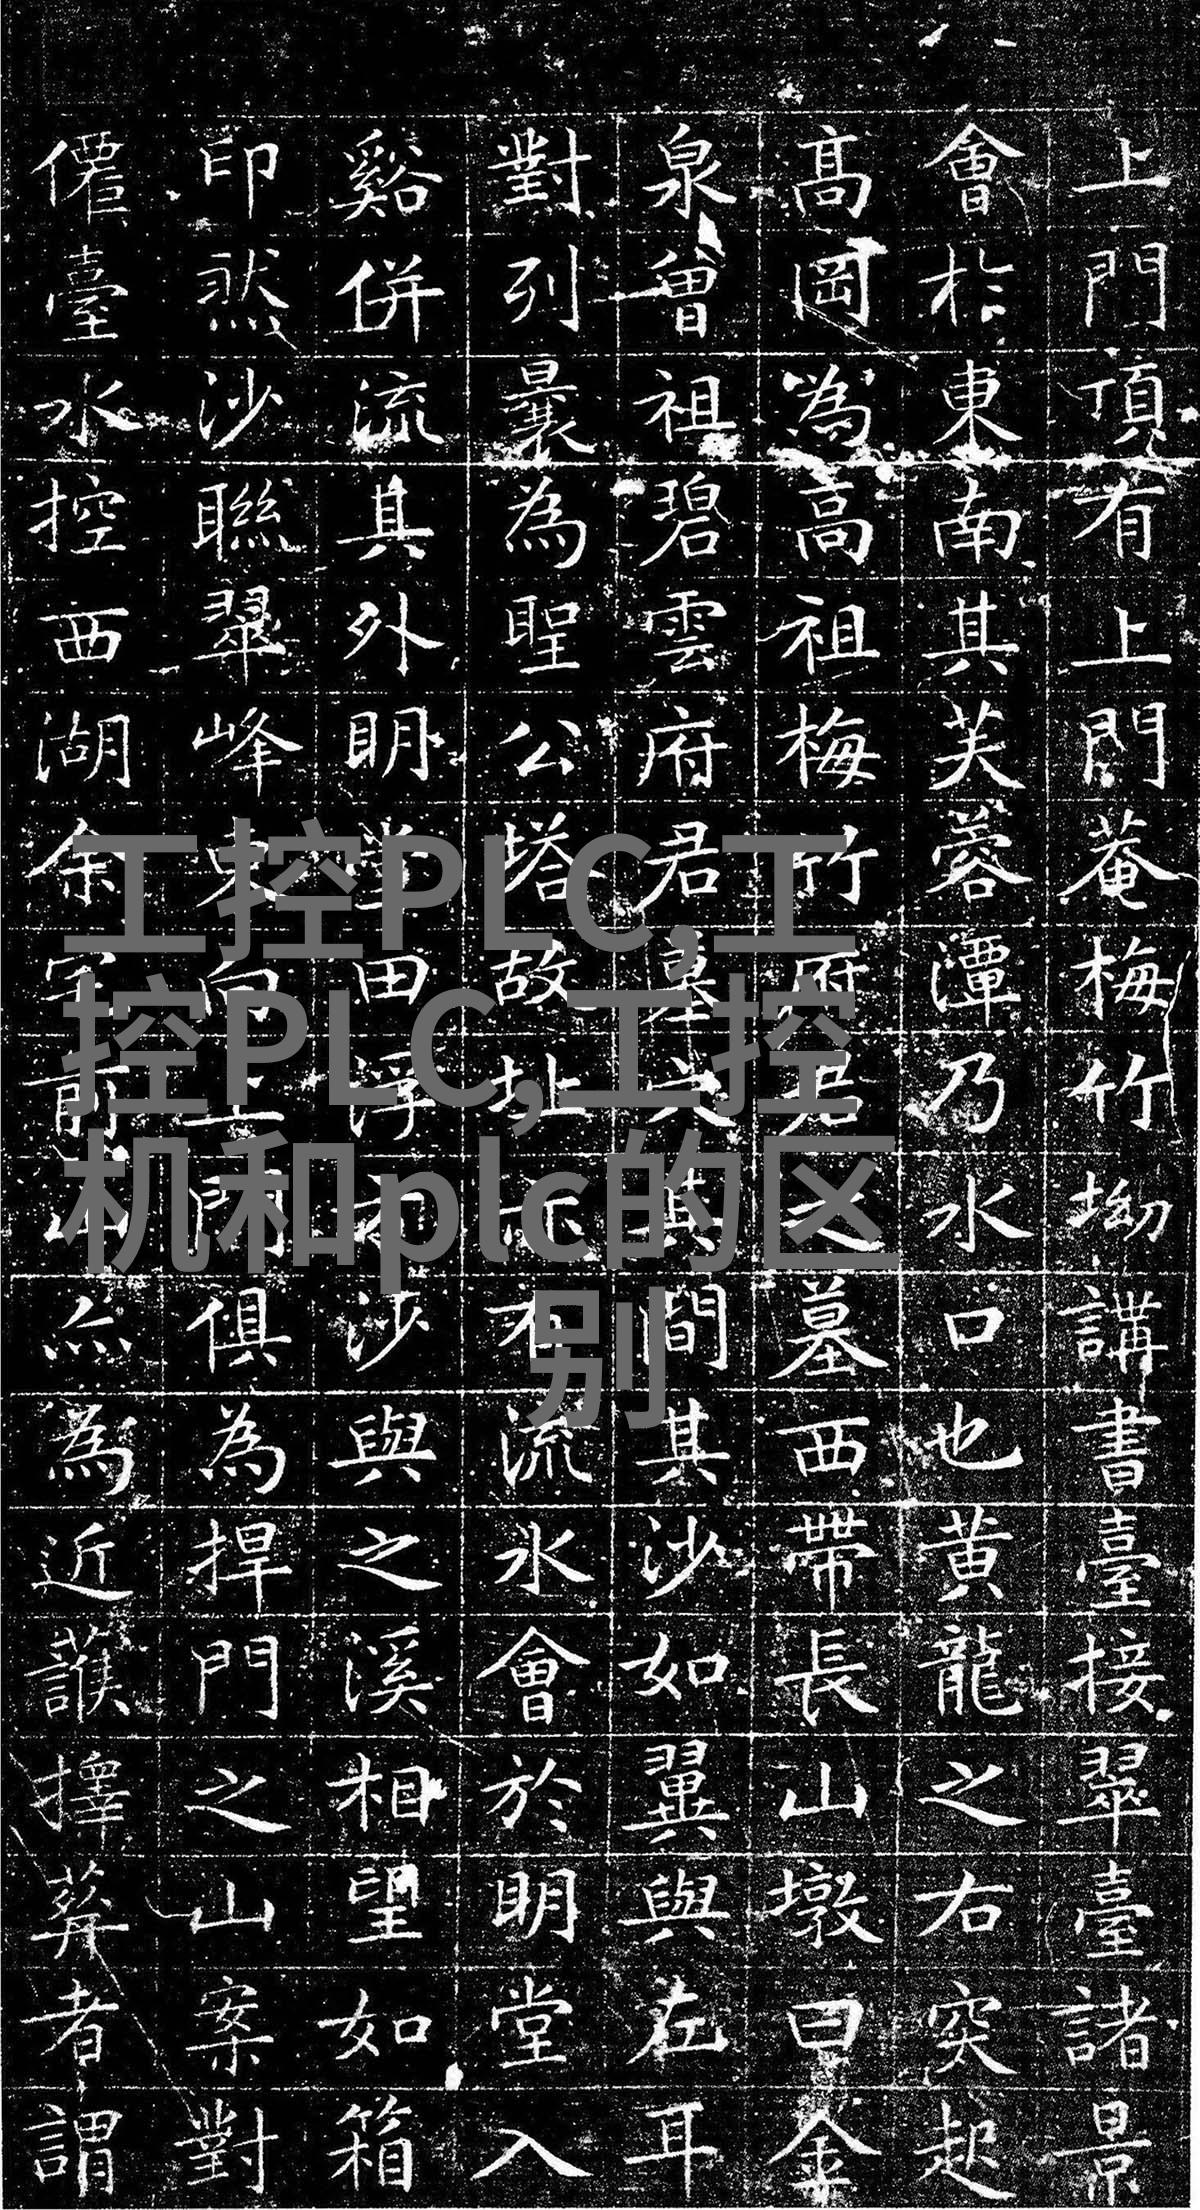 上門頂有上門菴梅竹坳講書臺接翠臺諸景
會於東南其芙蓉潭乃水口也黄龍之右突起
髙岡為高祖梅竹府君之墓西帶長山墩曰金
泉曾祖碧雲府君墓其間其沙如翼與左耳
對列曩為聖公塔故址右流水會於明堂入
谿併流其外明堂田浮沙與之溪相望如箱
印然沙聯翠峰東向上門俱為捍門之山案對
僊臺水控西湖余家前山為近護擇葬者謂
工控PLC,工
控PLC,工控
机和plc的区
别